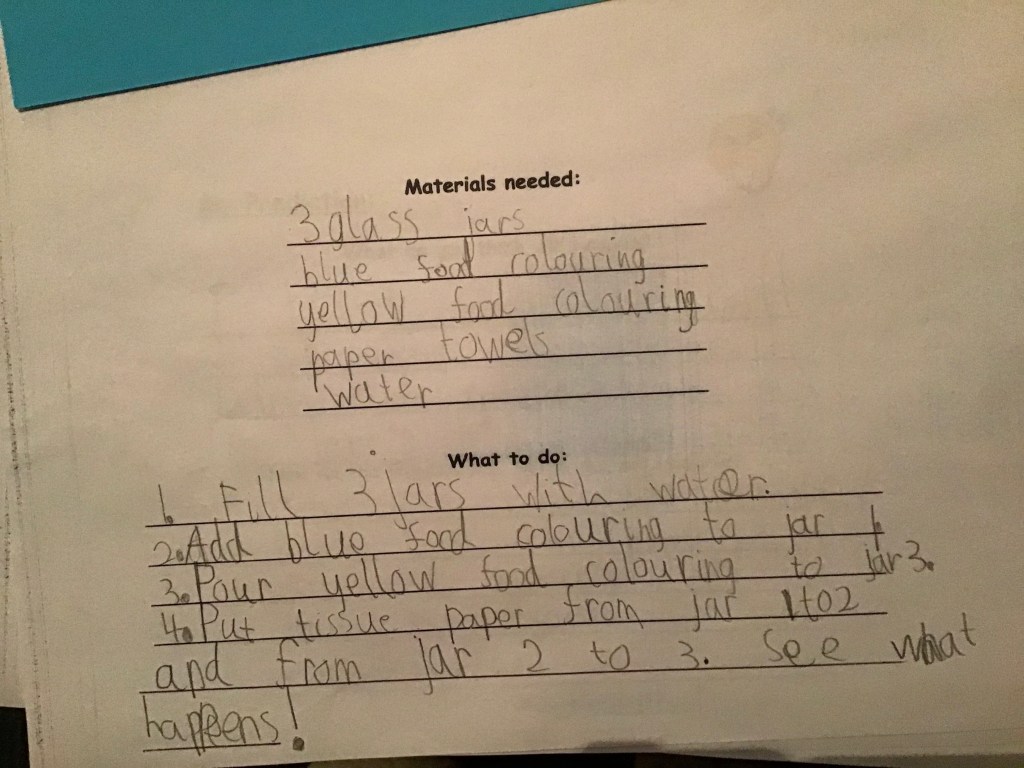 Materials needed:
3 glass jars
blue food colouring
yellow food colouring
paper towels
water
What to do:
1. Fill 3 jars with water.
2. Add blue food colouring to jar 1
3. Pour yellow food colouring to jar 3.
4. Put tissue paper from jar 1 to 2
and from jar 2 to 3. See what
happens!